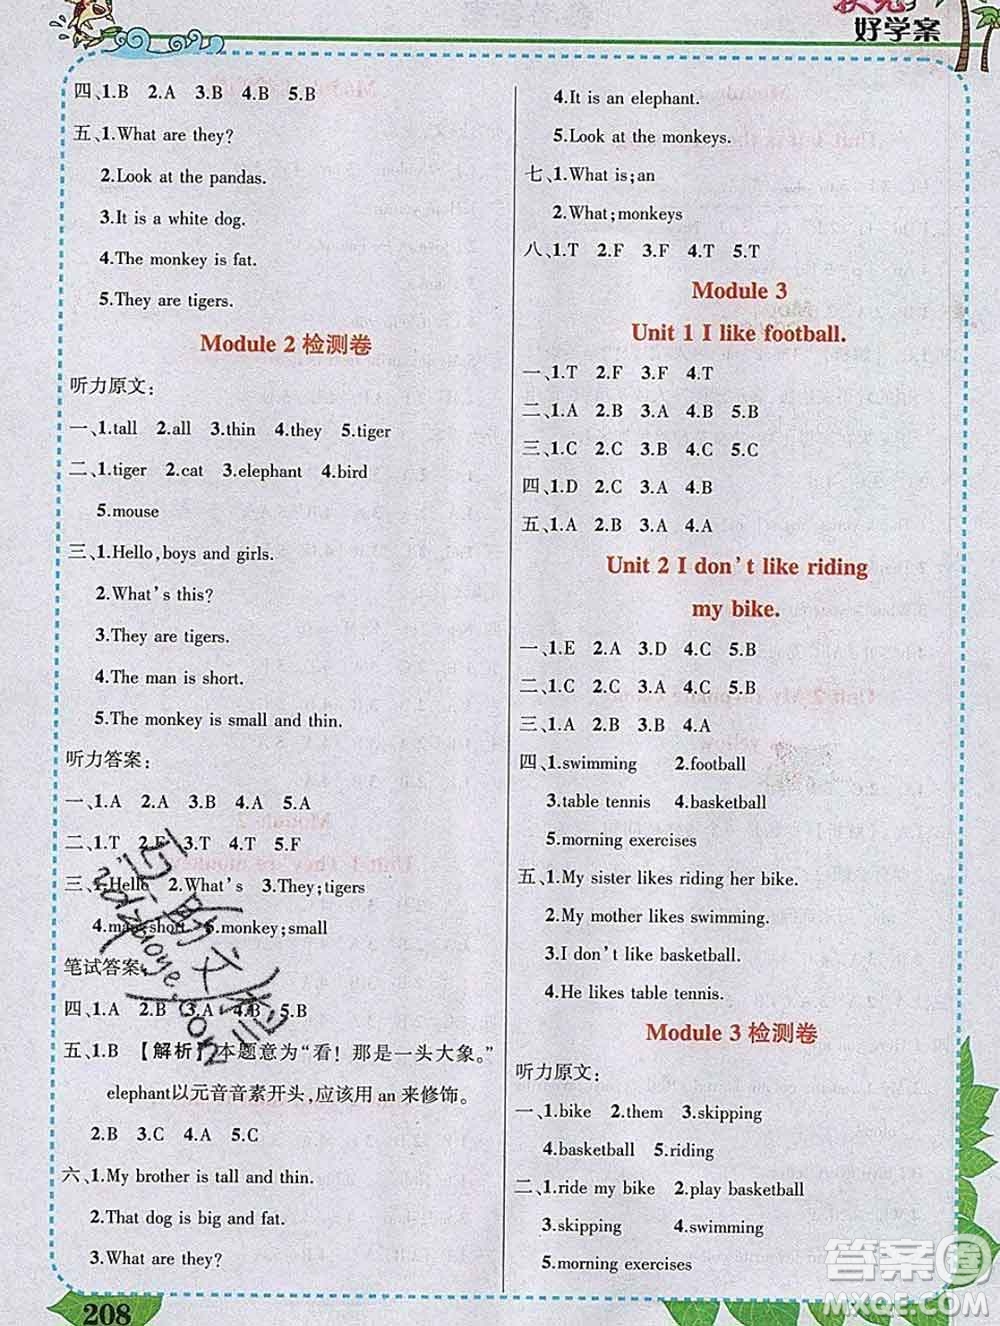 状元
好学案
四、1.B 2.A 3.B 4.B 5.B
五、1.What are they?
2.Look at the pandas.
3.It is a white dog.
4.The monkey is fat.
5.They are tigers.
Module 2 检测卷
听力原文：
一、1.tall 2.all 3.thin 4.they 5.tiger
二、1.tiger 2.cat 3.elephant 4.bird
5.mouse
三、1.Hello,boys and girls.
2.What's this?
3.They are tigers.
4.The man is short.
5.The monkey is small and thin.
听力答案：
一、1.A 2.A 3.B 4.A 5.A
二、1.T 2.F 3.T 4.T 5.F
三、1.Hello 2.What's 3.They;tigers
4.man;short 5.monkey;small
笔试答案：
四、1.A 2.B 3.A 4.B 5.B
五、1.B 【解析】本题意为“看！那是一头大象。”
elephant以元音音素开头,应该用 an 来修饰。
2.B 3.C 4.A 5.C
六、1.My brother is tall and thin.
2.That dog is big and fat.
3.What are they?
4.It is an elephant.
5.Look at the monkeys.
七、1.What is;an
2.What;monkeys
八、1.T 2.F 3.F 4.T 5.T
Module 3
Unit 1 I like football.
一、1.T 2.F 3.F 4.T
二、1.A 2.A 3.A 4.B 5.B
三、1.C 2.C 3.A 4.B 5.C
四、1.D 2.C 3.A 4.B
五、1.A 2.B 3.A 4.A
Unit 2 I don't like riding
my bike.
一、1.E 2.A 3.D 4.C 5.B
二、1.C 2.C 3.A 4.B 5.B
三、1.A 2.B 3.B 4.A
四、1.swimming 2.football
3.table tennis 4.basketball
5.morning exercises
五、1.My sister likes riding her bike.
2.My mother likes swimming.
3.I don't like basketball.
4.He likes table tennis.
Module 3 检测卷
听力原文：
一、1.bike 2.them 3.skipping
4.basketball 5.riding
二、1.ride my bike 2.play basketball
3.skipping 4.swimming
5.morning exercises
208
答案圈
MXQE.COM